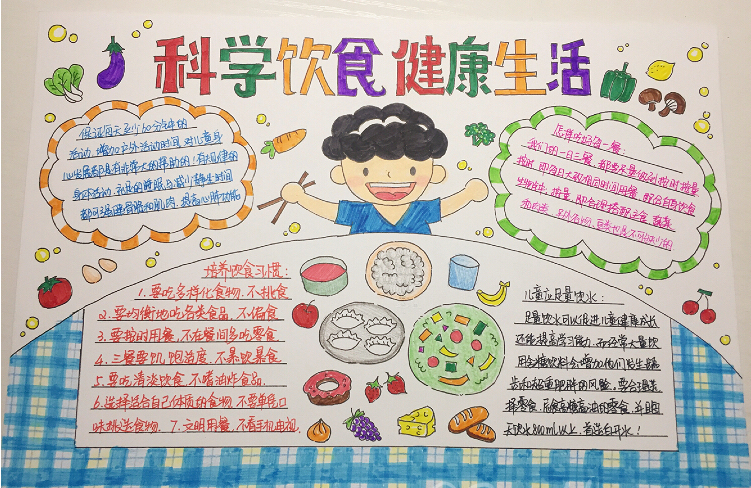 科学饮食 健康生活
保证每天至少60分钟的
活动,增加户外活动时间,对儿童身
心发展都具有非常大的帮助的!有规律的
身体活动、充足的睡眠与减少静坐时间
都可强健骨骼和肌肉,提高心肺功能
怎样吃好每一餐:
我们的一日三餐,都要尽量做到按时按量
按时,即在大致相同时间用餐,
按量,即合理搭配主食、蔬菜
培养饮食习惯:
1.要吃多样化食物,不挑食
2.要均衡地吃各类食品,不偏食
3.要按时用餐,不在餐间多吃零食.
4.三餐要饥饱适度,不暴饮暴食
5.要吃清淡饮食,不嗜油炸食品.
6.选择适合自己体质的食物,不要单凭口
味挑选食物. 7.文明用餐,不看手机电视.
儿童应足量饮水:
足量饮水可以促进儿童健康成长
还能提高学习能力,而经常大量饮
用含糖饮料会增加他们发生龋
齿和超重肥胖的风险,要合理选
择零食,高糖高油的零食,并且每
天饮水800mL以上,首选白开水!